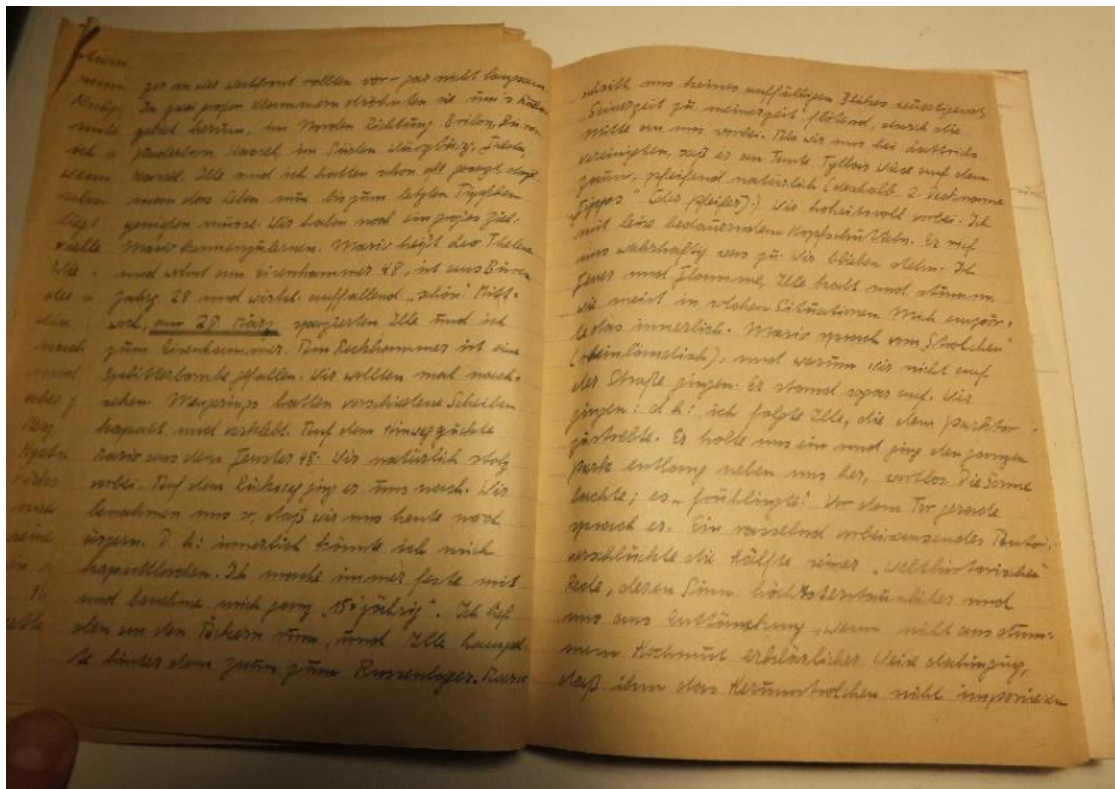 ger an der Westfront rollten vor – gar nicht langsam.
In zwei großen Klammern drehten sie um's
gebiet herum, im Norden Richtung Brilon, Büren
Paderborn, Kassel, im Süden Würzburg, Fulda,
Kassel. Ille und ich hatten schon oft gesagt, daß
man das Leben nun bis zum letzten Tröpfchen
genießen müsse. Wir haben noch ein großes Ziel:
Mario kennenzulernen. Mario heißt Leo Thelene
und wohnt am Eisenhammer 48, ist aus Büren
Jahrg. 28 und wirkt auffallend „schön“. Mitt-
woch, am 28. März spazierten Ille und ich
zum Eisenhammer. Am Reckhammer ist eine
Splitterbombe gefallen. Wir wollten mal nach-
sehen. hatten verschiedene Scheiben
kaputt und verklebt. Auf dem Hinweg guckte
Mario aus dem Fenster 48. Wir natürlich stolz
vorbei. Auf dem Rückweg ging er uns nach. Wir
benahmen uns so, daß wir uns heute noch
ärgern. D. h.: innerlich könnte ich mich
kaputtlachen. Ich mache immer feste mit
und benehme mich ganz „15½ jährig“. Ich lief
den an den rum, und Ille
te hinter dem Zaun zum Russenlager. Mario
schritt, uns keines auffälligen Blickes würdigend
„Seinerzeit zu meinerzeit“ flötend, durch die
Mitte an uns vorbei. Als wir uns bei
vereinigten, saß er an Tante Wiese auf dem
Zaun, pfeifend natürlich (deshalb 2. Deckname
„Pippos“ (der Pfeifer).) Wir hoheitsvoll vorbei. Ich
mit leise bedauerndem Kopfschütteln. Er rief
uns wahrhaftig was zu. Wir blieben stehn. Ich
Feuer und Flamme, Ille kalt und stumm
wie meist in solchen Situationen. Mich empör-
te das innerlich. Mario sprach von „Strolchen“
und warum wir nicht auf
der Straße gingen. Er stand sogar auf. Wir
gingen: d. h.: ich folgte Ille, die dem Parktor
zustrebte. Er holte uns ein und ging den ganzen
Park entlang neben uns her, wortlos. Die Sonne
lachte; es „frühlingte“! Vor dem Tor gerade
sprach er. Ein rasselnd vorbeisausendes Auto
verschluckte die Hälfte seiner „welthistorischen“
Rede, deren Sinn und
uns aus Enttäuschung, wenn nicht aus stum-
mem Hochmut erklärlicher Weise dahinging,
daß ihm das Herumstrolchen nicht imponieren